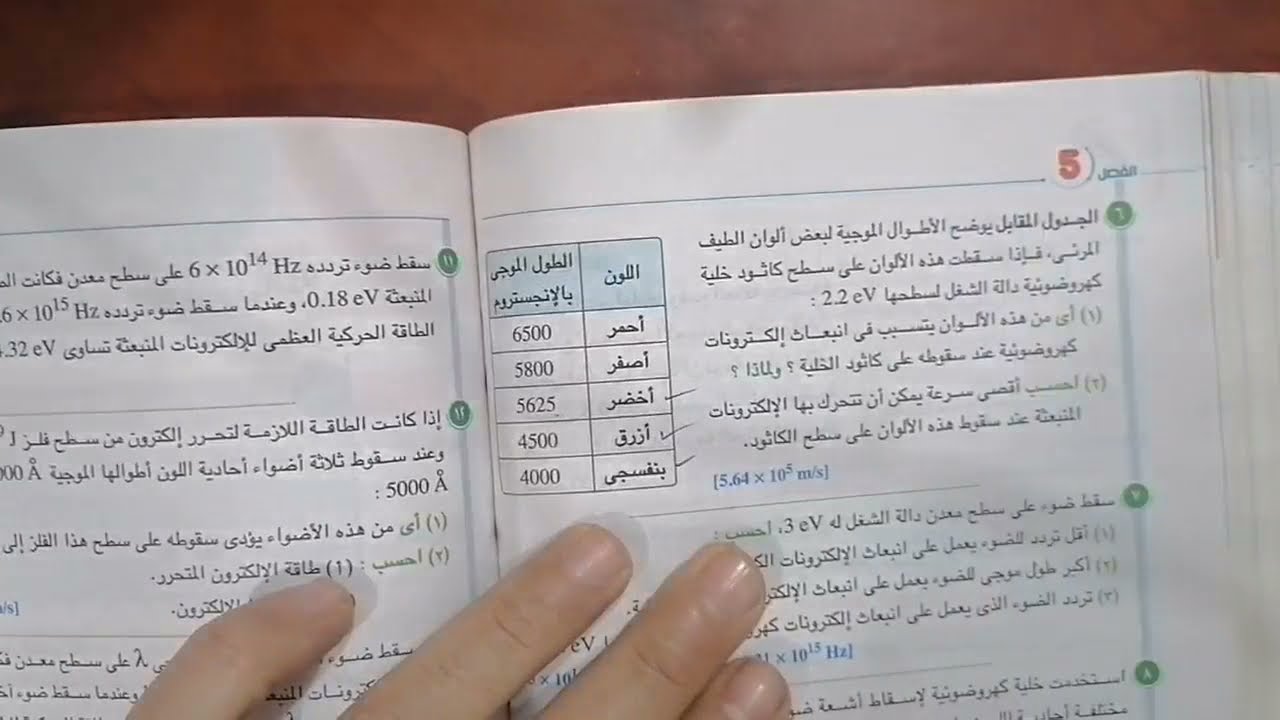 الفصل 5
٦ الجدول المقابل يوضح الأطوال الموجية لبعض ألوان الطيف
المرئى، فإذا سقطت هذه الألوان على سطح كاثود خلية
كهروضوئية دالة الشغل لسطحها 2.2 eV :
(١) أى من هذه الألوان يتسبب فى انبعاث إلكترونات
كهروضوئية عند سقوطه على كاثود الخلية ؟ ولماذا ؟
(٢) احسب أقصى سرعة يمكن أن تتحرك بها الإلكترونات
المنبعثة عند سقوط هذه الألوان على سطح الكاثود.
[5.64 × 10⁵ m/s]
اللون الطول الموجى بالإنجستروم
أحمر 6500
أصفر 5800
أخضر 5625
أزرق 4500
بنفسجى 4000
٧ سقط ضوء على سطح معدن دالة الشغل له 3 eV، احسب :
(١) أقل تردد للضوء يعمل على انبعاث الإلكترونات
(٢) أكبر طول موجى للضوء يعمل على انبعاث
(٣) تردد الضوء الذى يعمل على انبعاث إلكترونات
× 10¹⁵ Hz]
٨ استخدمت خلية كهروضوئية لإسقاط أشعة
مختلفة
١١ سقط ضوء تردده 6 × 10¹⁴ Hz على سطح معدن فكانت
المنبعثة 0.18 eV، وعندما سقط ضوء تردده 6 × 10¹⁵ Hz
الطاقة الحركية العظمى للإلكترونات المنبعثة تساوى .32 eV
١٢ إذا كانت الطاقة اللازمة لتحرر إلكترون من سطح فلز J
وعند سقوط ثلاثة أضواء أحادية اللون أطوالها الموجية 00 Å
5000 Å :
(١) أى من هذه الأضواء يؤدى سقوطه على سطح هذا الفلز إلى
(٢) احسب : (أ) طاقة الإلكترون المتحرر.
الإلكترون.
سقط ضوء λ على سطح معدن
وعندما سقط ضوء